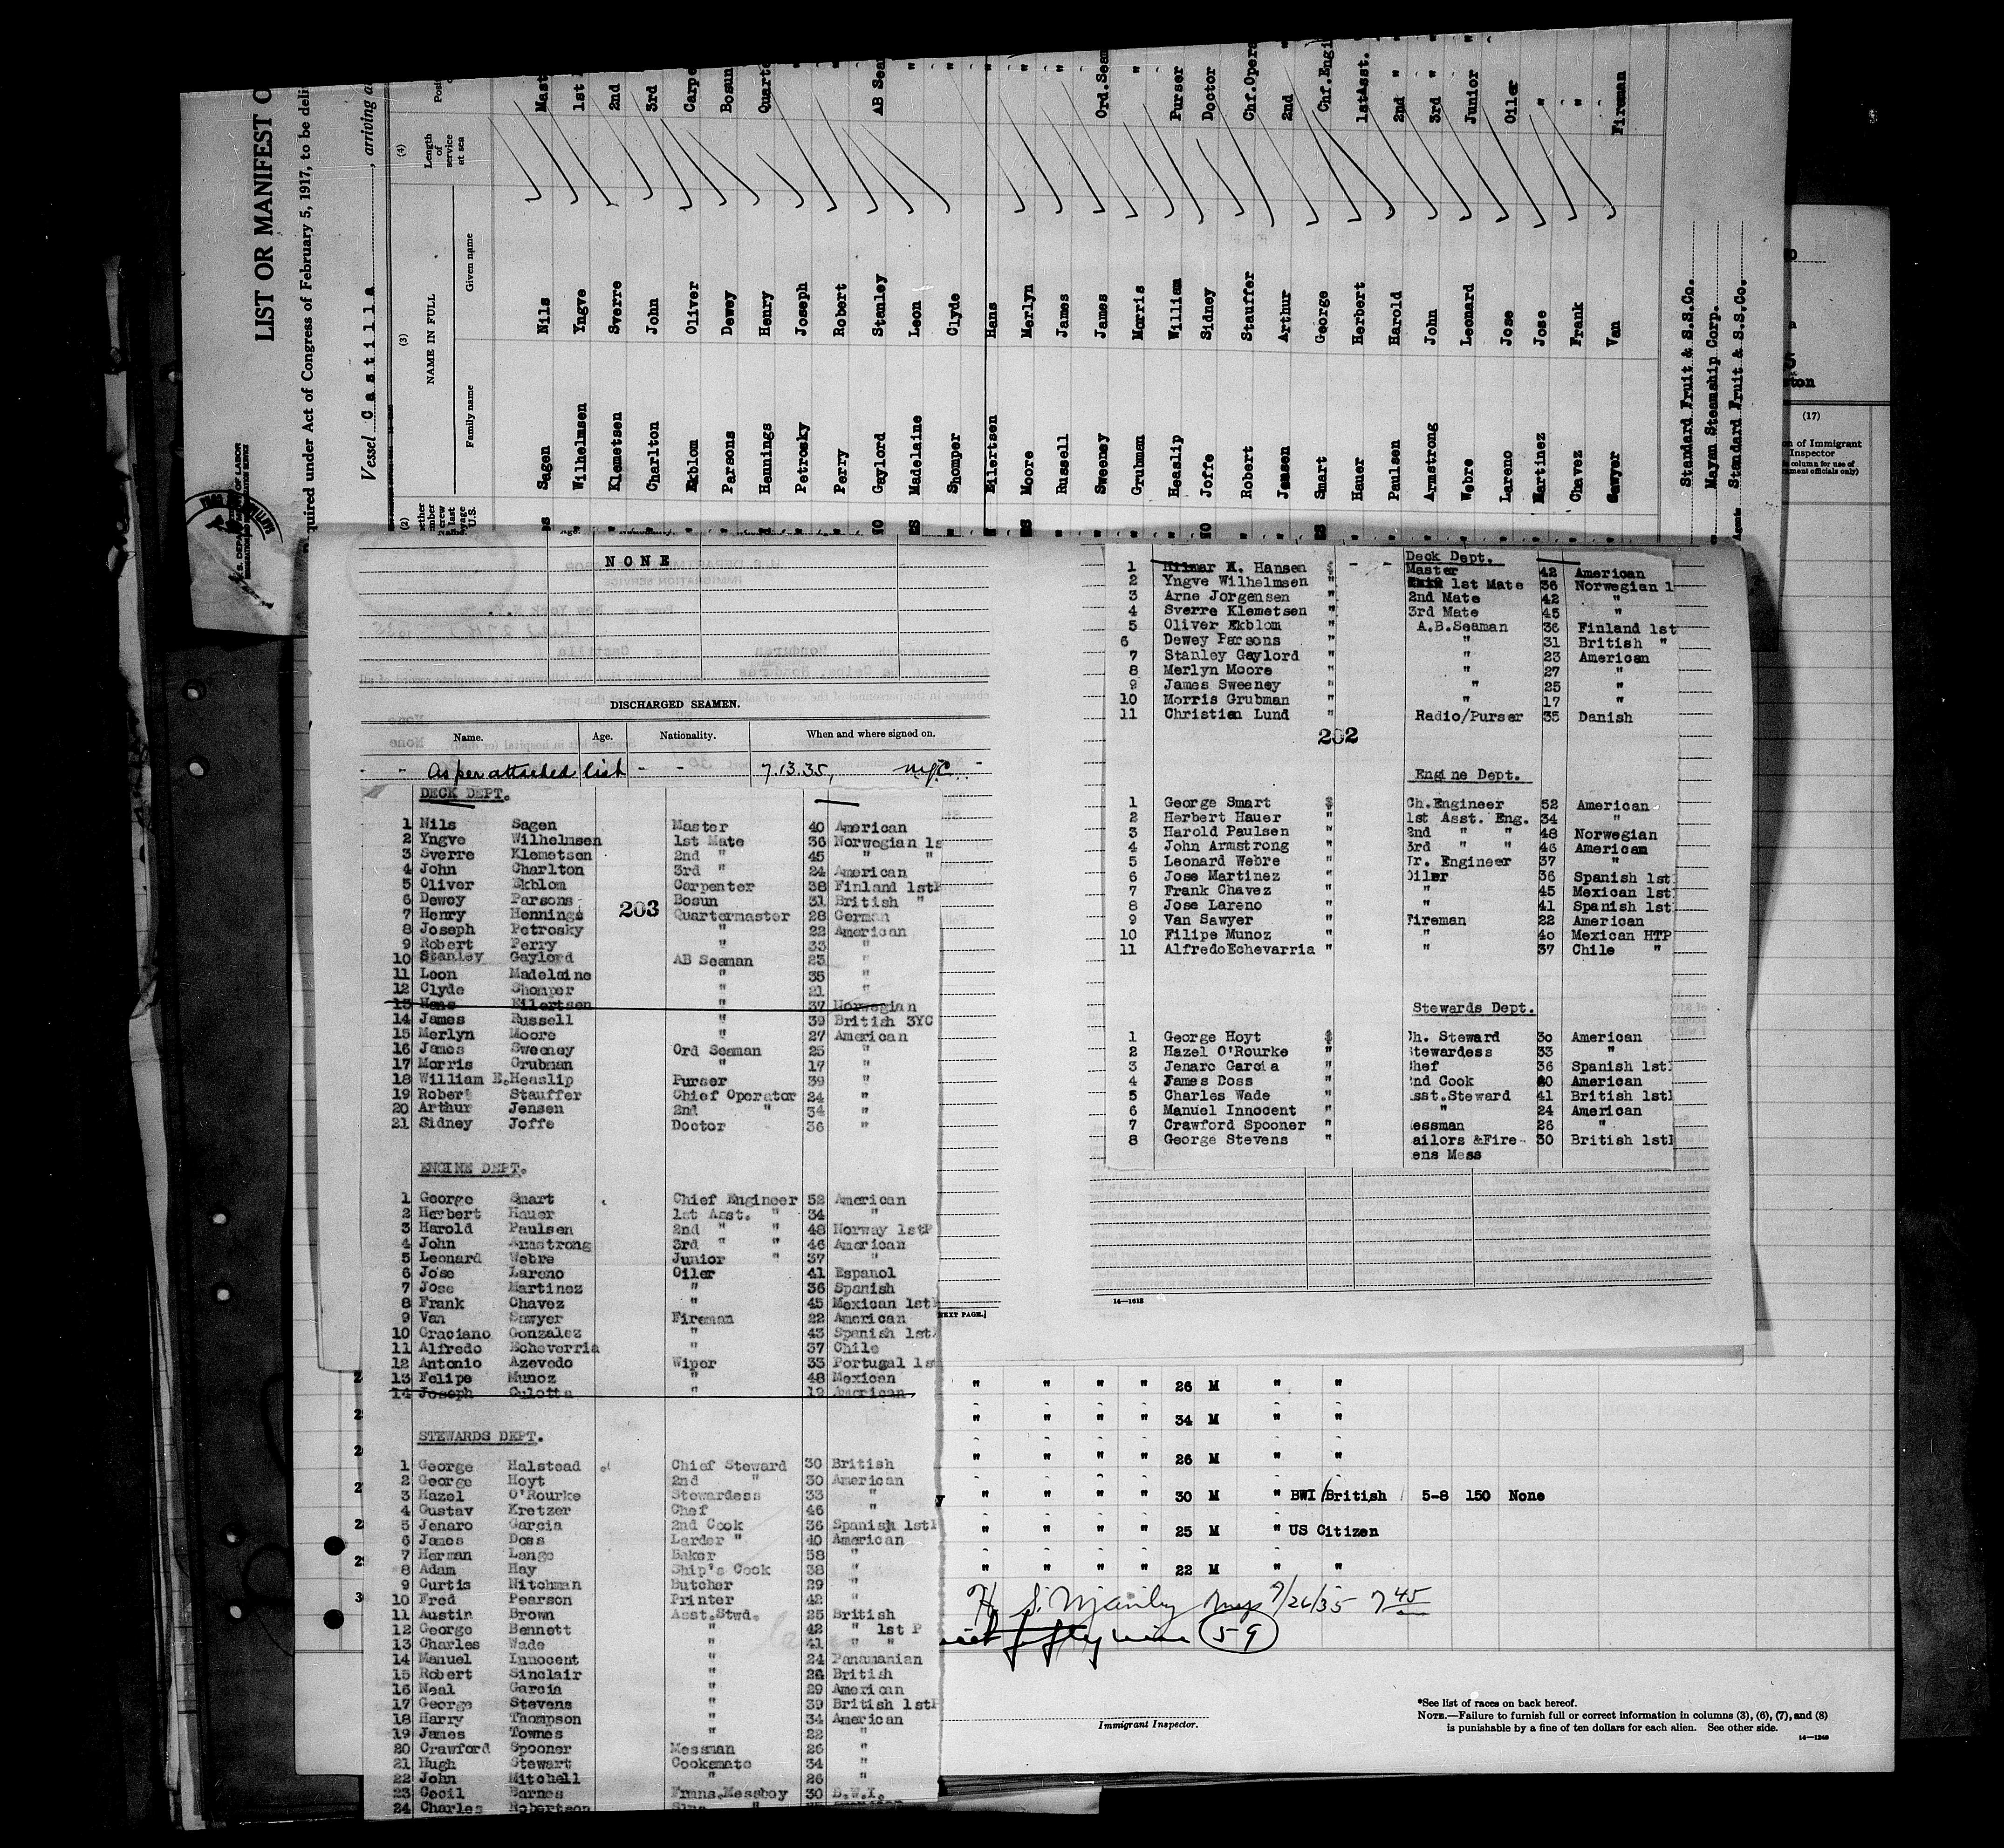 LIST OR MANIFEST O
quired under Act of Congress of February 5, 1917, to be deli
Vessel Castilla, arriving a
U.S. DEPARTMENT OF LABOR
(2)
(3)
(4)
NAME IN FULL
Family name
Given name
Length of service at sea
Sagen Nils Mast
Wilhelmsen Yngve 1st
Klemetsen Sverre 2nd
Charlton John 3rd
Ekblom Oliver Carpe
Parsons Dewey Bosun
Hennings Henry Quarte
Petrosky Joseph "
Perry Robert "
Gaylord Stanley AB Sea
Madelaine Leon "
Shomper Clyde "
Eilertsen Hans "
Moore Merlyn "
Russell James "
Sweeney James Ord.Sea
Grubman Morris "
Heaslip William Purser
Joffe Sidney Doctor
Robert Stauffer Chf.Opera
Jensen Arthur 2nd "
Smart George Chf.Engi
Hauer Herbert 1stAsst.
Paulsen Harold 2nd "
Armstrong John 3rd "
Webre Leonard Junior
Lareno Jose Oiler
Martinez Jose "
Chavez Frank "
Sawyer Van Fireman
Standard Fruit & S.S.Co.
Mayan Steamship Corp.
Agents Standard Fruit & S.S.Co.
ton
(17)
n of Immigrant
Inspector
column for use of
ment officials only)
NONE
DISCHARGED SEAMEN.
Name. Age. Nationality. When and where signed on.
- - As per attached list - - 7.13.35, NYC. -
DECK DEPT.
1 Nils Sagen Master 40 American
2 Yngve Wilhelmsen 1st Mate 36 Norwegian 1s
3 Sverre Klemetsen 2nd " 45 " "
4 John Charlton 3rd " 24 American
5 Oliver Ekblom Carpenter 38 Finland 1stP
6 Dewey Parsons Bosun 31 British "
203
7 Henry Hennings Quartermaster 28 German
8 Joseph Petrosky " 22 American
9 Robert Perry " 33 "
10 Stanley Gaylord AB Seaman 23 "
11 Leon Madelaine " 35 "
12 Clyde Shomper " 21 "
13 Hans Eilertsen " 37 Norwegian
14 James Russell " 39 British 3YC
15 Merlyn Moore " 27 American
16 James Sweeney Ord Seaman 25 "
17 Morris Grubman " 17 "
18 William E.Heaslip Purser 39 "
19 Robert Stauffer Chief Operator 24 "
20 Arthur Jensen 2nd " 34 "
21 Sidney Joffe Doctor 36 "
ENGINE DEPT.
1 George Smart Chief Engineer 52 American
2 Herbert Hauer 1st Asst. " 34 "
3 Harold Paulsen 2nd " " 48 Norway 1stP
4 John Armstrong 3rd " " 46 American
5 Leonard Webre Junior " 37 "
6 Jose Lareno Oiler 41 Espanol
7 Jose Martinez " 36 Spanish
8 Frank Chavez " 45 Mexican 1stP
9 Van Sawyer Fireman 22 American
10 Graciano Gonzalez " 43 Spanish 1st
11 Alfredo Echeverria " 37 Chile
12 Antonio Azevedo Wiper 33 Portugal 1s
13 Felipe Munoz " 48 Mexican
14 Joseph Culotta " 19 American
STEWARDS DEPT.
1 George Halstead Chief Steward 30 British
2 George Hoyt 2nd " 30 American
3 Hazel O'Rourke Stewardess 33 "
4 Gustav Kretzer Chef 46 "
5 Jenaro Garcia 2nd Cook 36 Spanish 1stP
6 James Doss Larder " 40 American
7 Herman Lange Baker 58 "
8 Adam Hay Ship's Cook 38 "
9 Curtis Nitchman Butcher 29 "
10 Fred Pearson Printer 42 "
11 Austin Brown Asst.Stwd. 25 British
12 George Bennett " 42 " 1st P
13 Charles Wade " 41 " "
14 Manuel Innocent " 24 Panamanian
15 Robert Sinclair " 28 British
16 Neal Garcia " 29 American
17 George Stevens " 39 British 1stP
18 Harry Thompson " 34 American
19 James Townes " 22 "
20 Crawford Spooner Messman 26 "
21 Hugh Stewart Cooksmate 34 "
22 John Mitchell " 26 "
23 Cecil Barnes Frmns.Messboy 30 B.W.I.
24 Charles Robertson
Deck Dept.
1 Hilmar K. Hansen Master 42 American
2 Yngve Wilhelmsen " 1st Mate 36 Norwegian 1
3 Arne Jorgensen " 2nd Mate 42 "
4 Sverre Klemetsen " 3rd Mate 45 "
5 Oliver Ekblom " A.B.Seaman 36 Finland 1st
6 Dewey Parsons " " 31 British "
7 Stanley Gaylord " " 23 American
8 Merlyn Moore " " 27 "
9 James Sweeney " " 25 "
10 Morris Grubman " " 17 "
11 Christian Lund " Radio/Purser 35 Danish
202
Engine Dept.
1 George Smart Ch.Engineer 52 American
2 Herbert Hauer " 1st Asst. Eng. 34 "
3 Harold Paulsen " 2nd " " 48 Norwegian
4 John Armstrong " 3rd " " 46 American
5 Leonard Webre " Jr. Engineer 37 "
6 Jose Martinez " Oiler 36 Spanish 1st
7 Frank Chavez " " 45 Mexican 1st
8 Jose Lareno " " 41 Spanish 1st
9 Van Sawyer " Fireman 22 American
10 Filipe Munoz " " 40 Mexican HTP
11 AlfredoEchevarria " " 37 Chile "
Stewards Dept.
1 George Hoyt h. Steward 30 American
2 Hazel O'Rourke " tewardess 33 "
3 Jenaro Garcia " hef 36 Spanish 1st
4 James Doss " nd Cook 40 American
5 Charles Wade " sst.Steward 41 British 1st
6 Manuel Innocent " " 24 American
7 Crawford Spooner " essman 26 "
8 George Stevens " ailors &Fire- 30 British 1st
ens Mess
14—1618
NEXT PAGE.]
" " " " 26 M " "
" " " " 34 M " "
" " " " 26 M " "
" " " " 30 M " BWI/British 5-8 150 None
" " " " 25 M " US Citizen
" " " " 22 M " "
7/26/35 7 45
fifty nine 59
Immigrant Inspector.
*See list of races on back hereof.
NOTE.—Failure to furnish full or correct information in columns (3), (6), (7), and (8)
is punishable by a fine of ten dollars for each alien. See other side.
14—1240